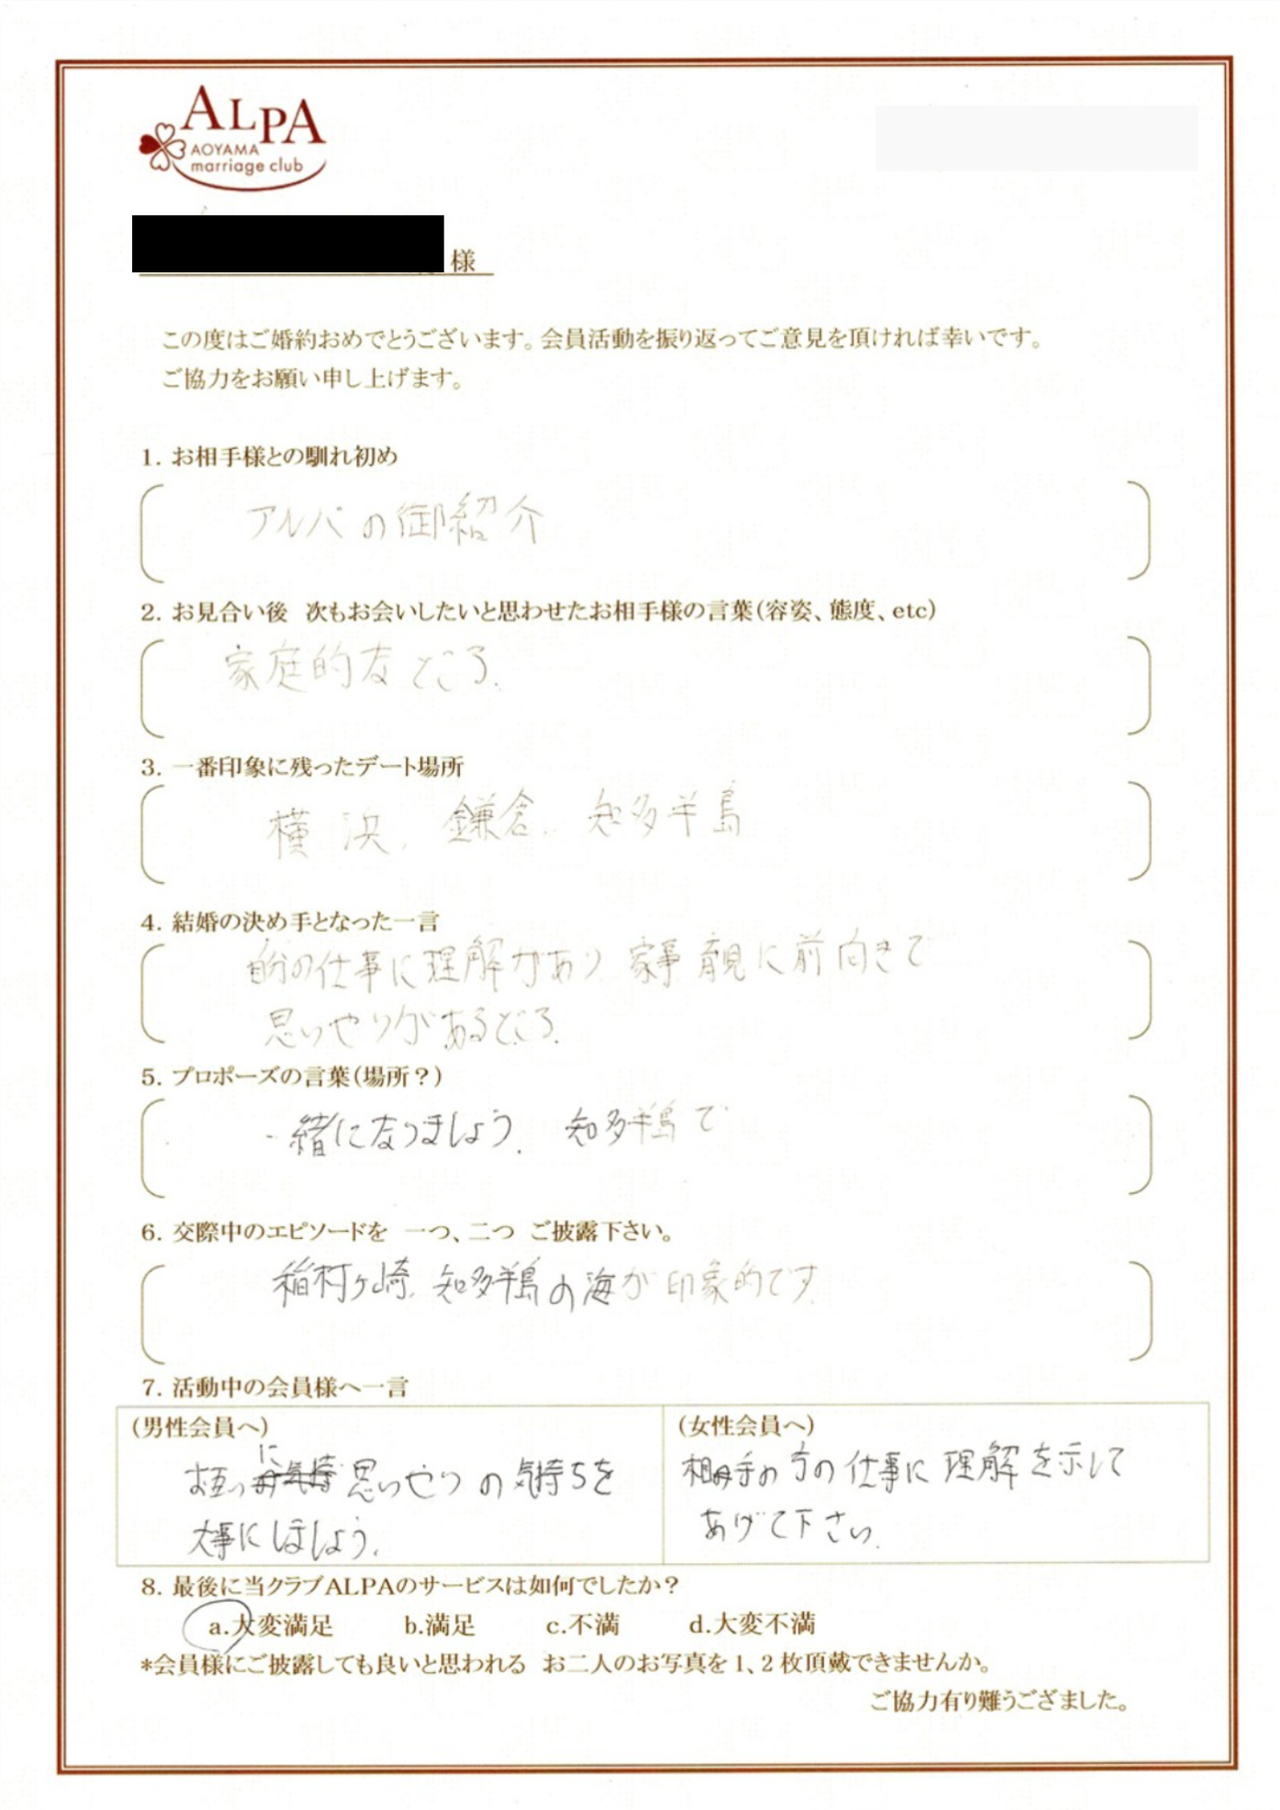 ALPA
AOYAMA
marriage club
様
この度はご婚約おめでとうございます。会員活動を振り返ってご意見を頂ければ幸いです。
ご協力をお願い申し上げます。
1. お相手様との馴れ初め
アルパの御紹介
2. お見合い後 次もお会いしたいと思わせたお相手様の言葉(容姿、態度、etc)
家庭的なところ.
3. 一番印象に残ったデート場所
横浜, 鎌倉, 知多半島
4. 結婚の決め手となった一言
自分の仕事に理解があり 家事 育児に前向きで
思いやりがあるところ.
5. プロポーズの言葉(場所?)
一緒になりましょう. 知多半島で
6. 交際中のエピソードを 一つ、二つ ご披露下さい。
稲村ヶ崎, 知多半島の海が印象的です.
7. 活動中の会員様へ一言
(男性会員へ)
お互いに思いやりの気持ちを
大事にしましょう.
(女性会員へ)
相手の方の仕事に理解を示して
あげて下さい.
8. 最後に当クラブALPAのサービスは如何でしたか?
a.大変満足 b.満足 c.不満 d.大変不満
*会員様にご披露しても良いと思われる お二人のお写真を1、2枚頂戴できませんか。
ご協力有り難うござました。